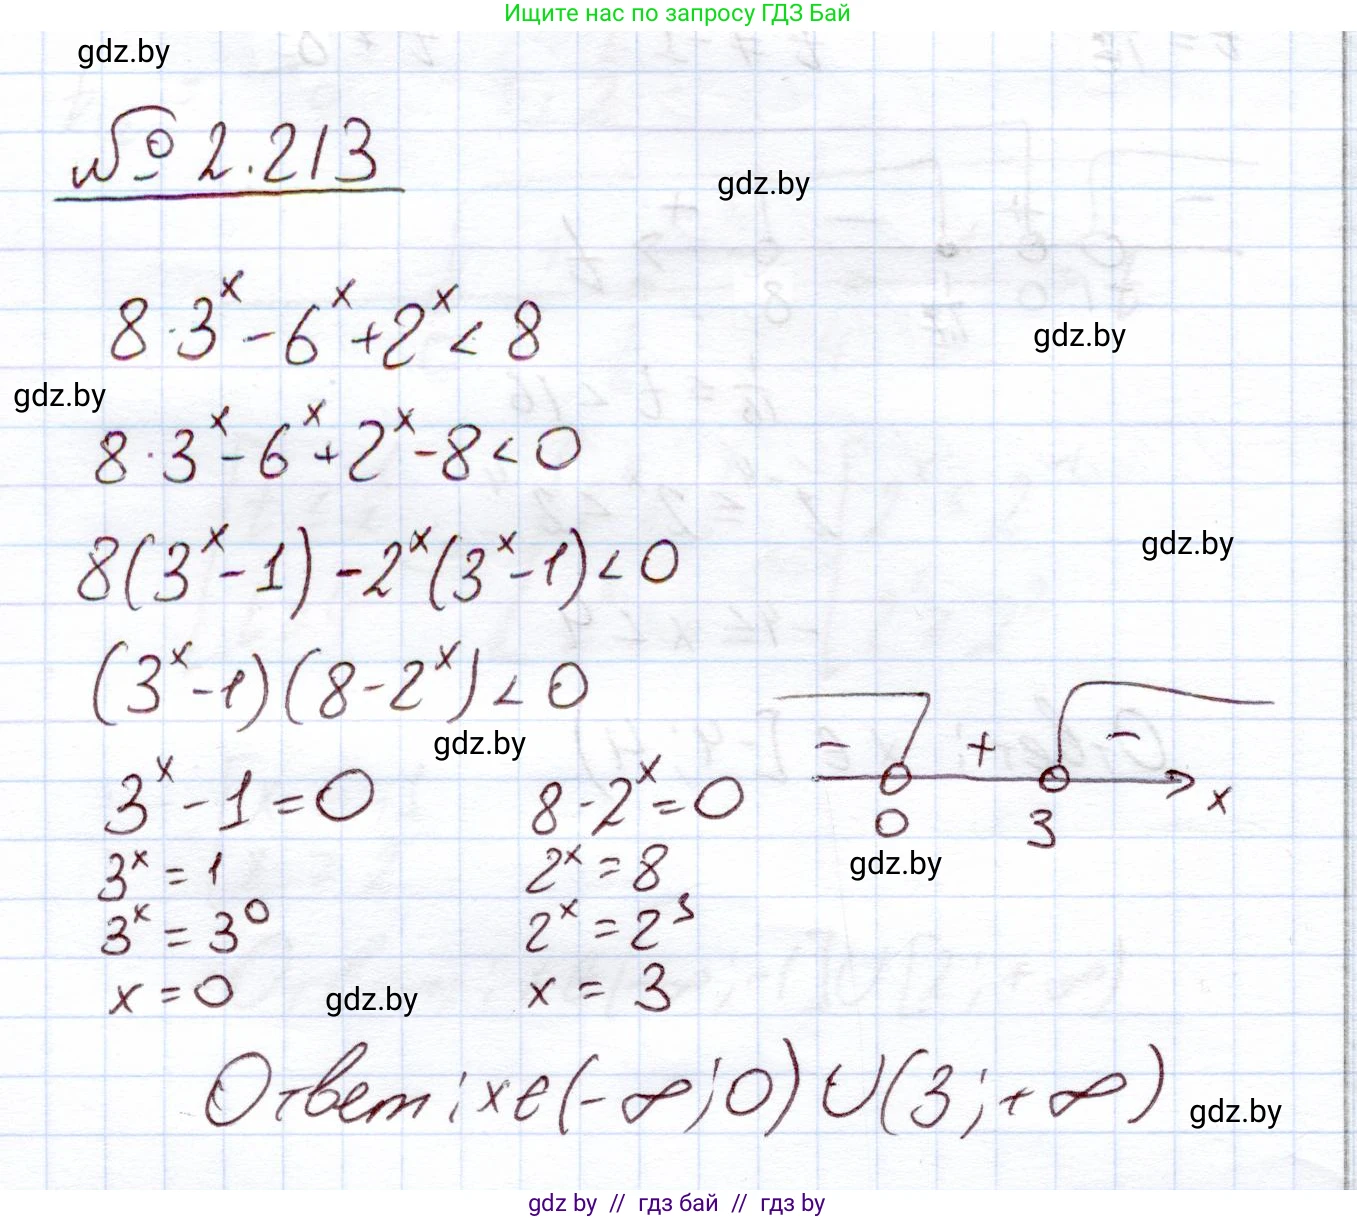 Ищите нас по запросу ГДЗ Бай
gdz.by
№ 2.213
gdz.by
8·3^x - 6^x + 2^x < 8
gdz.by
gdz.by
8·3^x - 6^x + 2^x - 8 < 0
8(3^x - 1) - 2^x(3^x - 1) < 0
gdz.by
(3^x - 1)(8 - 2^x) < 0
gdz.by
3^x - 1 = 0
3^x = 1
3^x = 3^0
x = 0
8 - 2^x = 0
2^x = 8
2^x = 2^3
x = 3
- + -
0 3 x
gdz.by
gdz.by
Ответ: x ∈ (-∞; 0) ∪ (3; +∞)
gdz.by
gdz by // гдз бай // гдз by